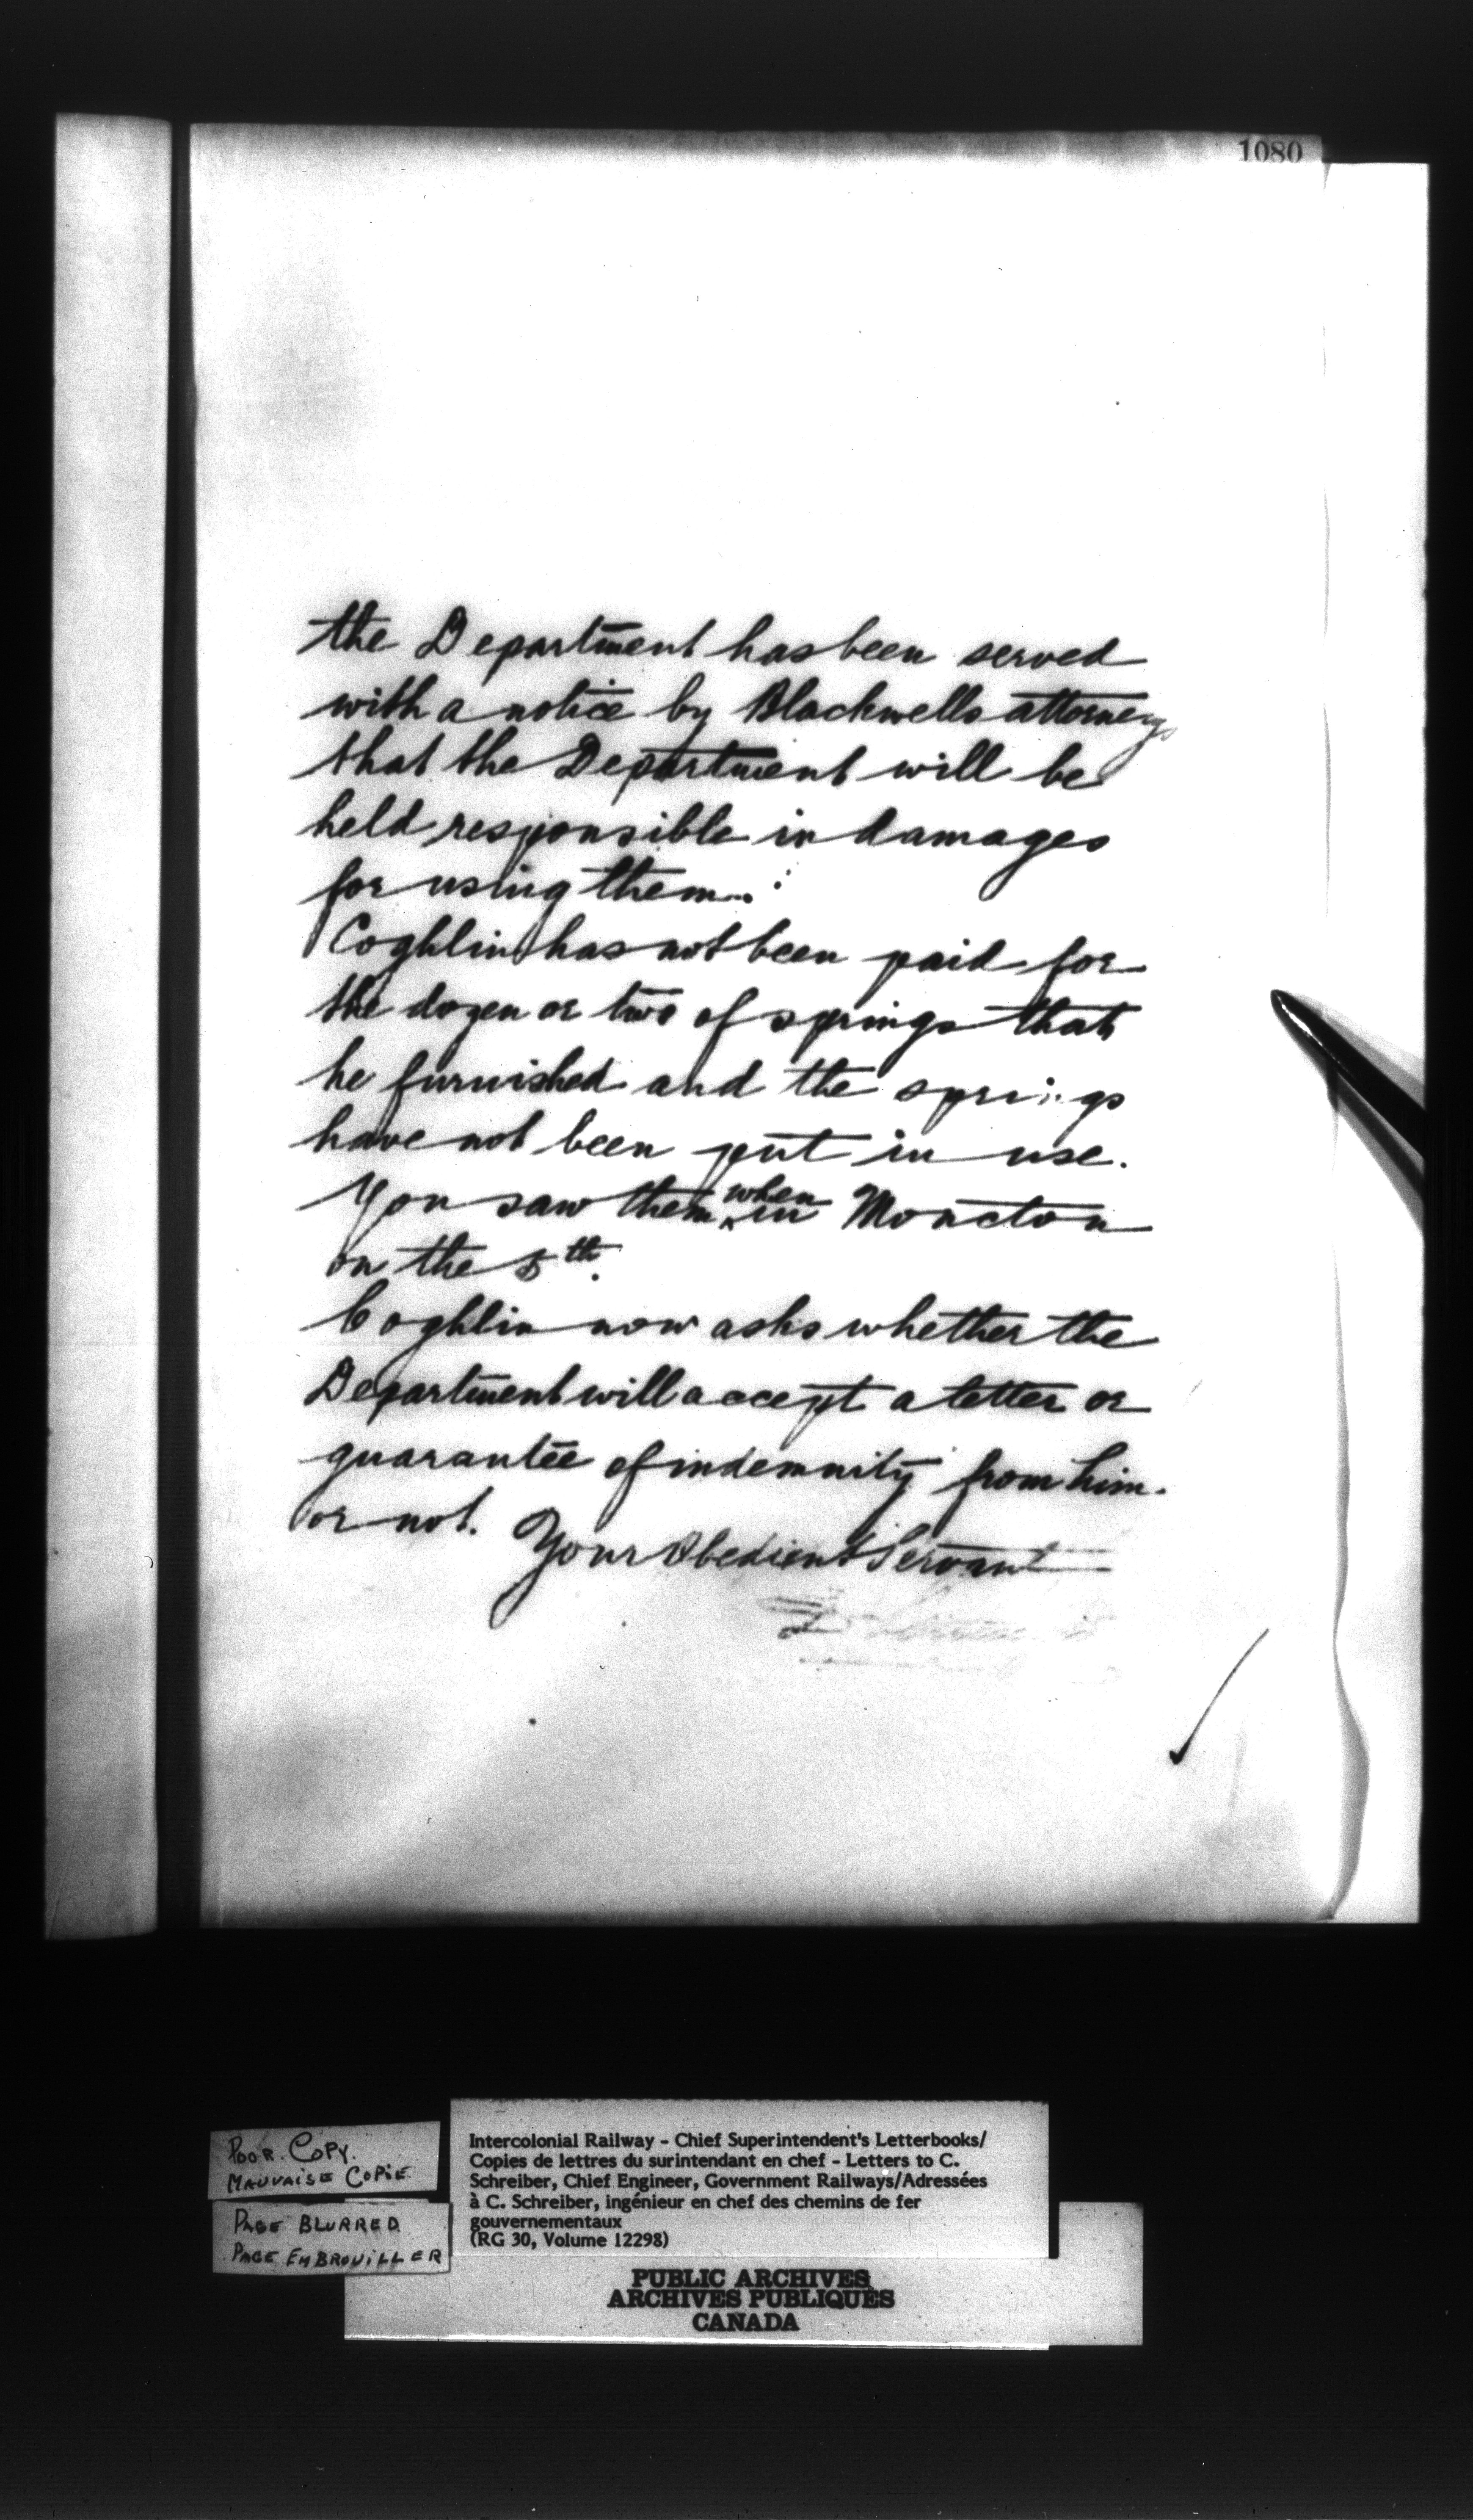 1080
the Department has been served
with a notice by Blackwells attorneys
that the Department will be
held responsible in damages
for using them.
Coghlin has not been paid for
the dozen or two of springs that
he furnished and the springs
have not been put in use.
You saw them when in Moncton
on the 5th.
Coghlin now asks whether the
Department will accept a letter or
guarantee of indemnity from him.
or not.
Your Obedient Servant
POOR. COPY.
MAUVAISE COPIE
PAGE BLURRED
PAGE EMBROUILLER
Intercolonial Railway - Chief Superintendent's Letterbooks/
Copies de lettres du surintendant en chef - Letters to C.
Schreiber, Chief Engineer, Government Railways/Adressées
à C. Schreiber, ingénieur en chef des chemins de fer
gouvernementaux
(RG 30, Volume 12298)
PUBLIC ARCHIVES
ARCHIVES PUBLIQUES
CANADA